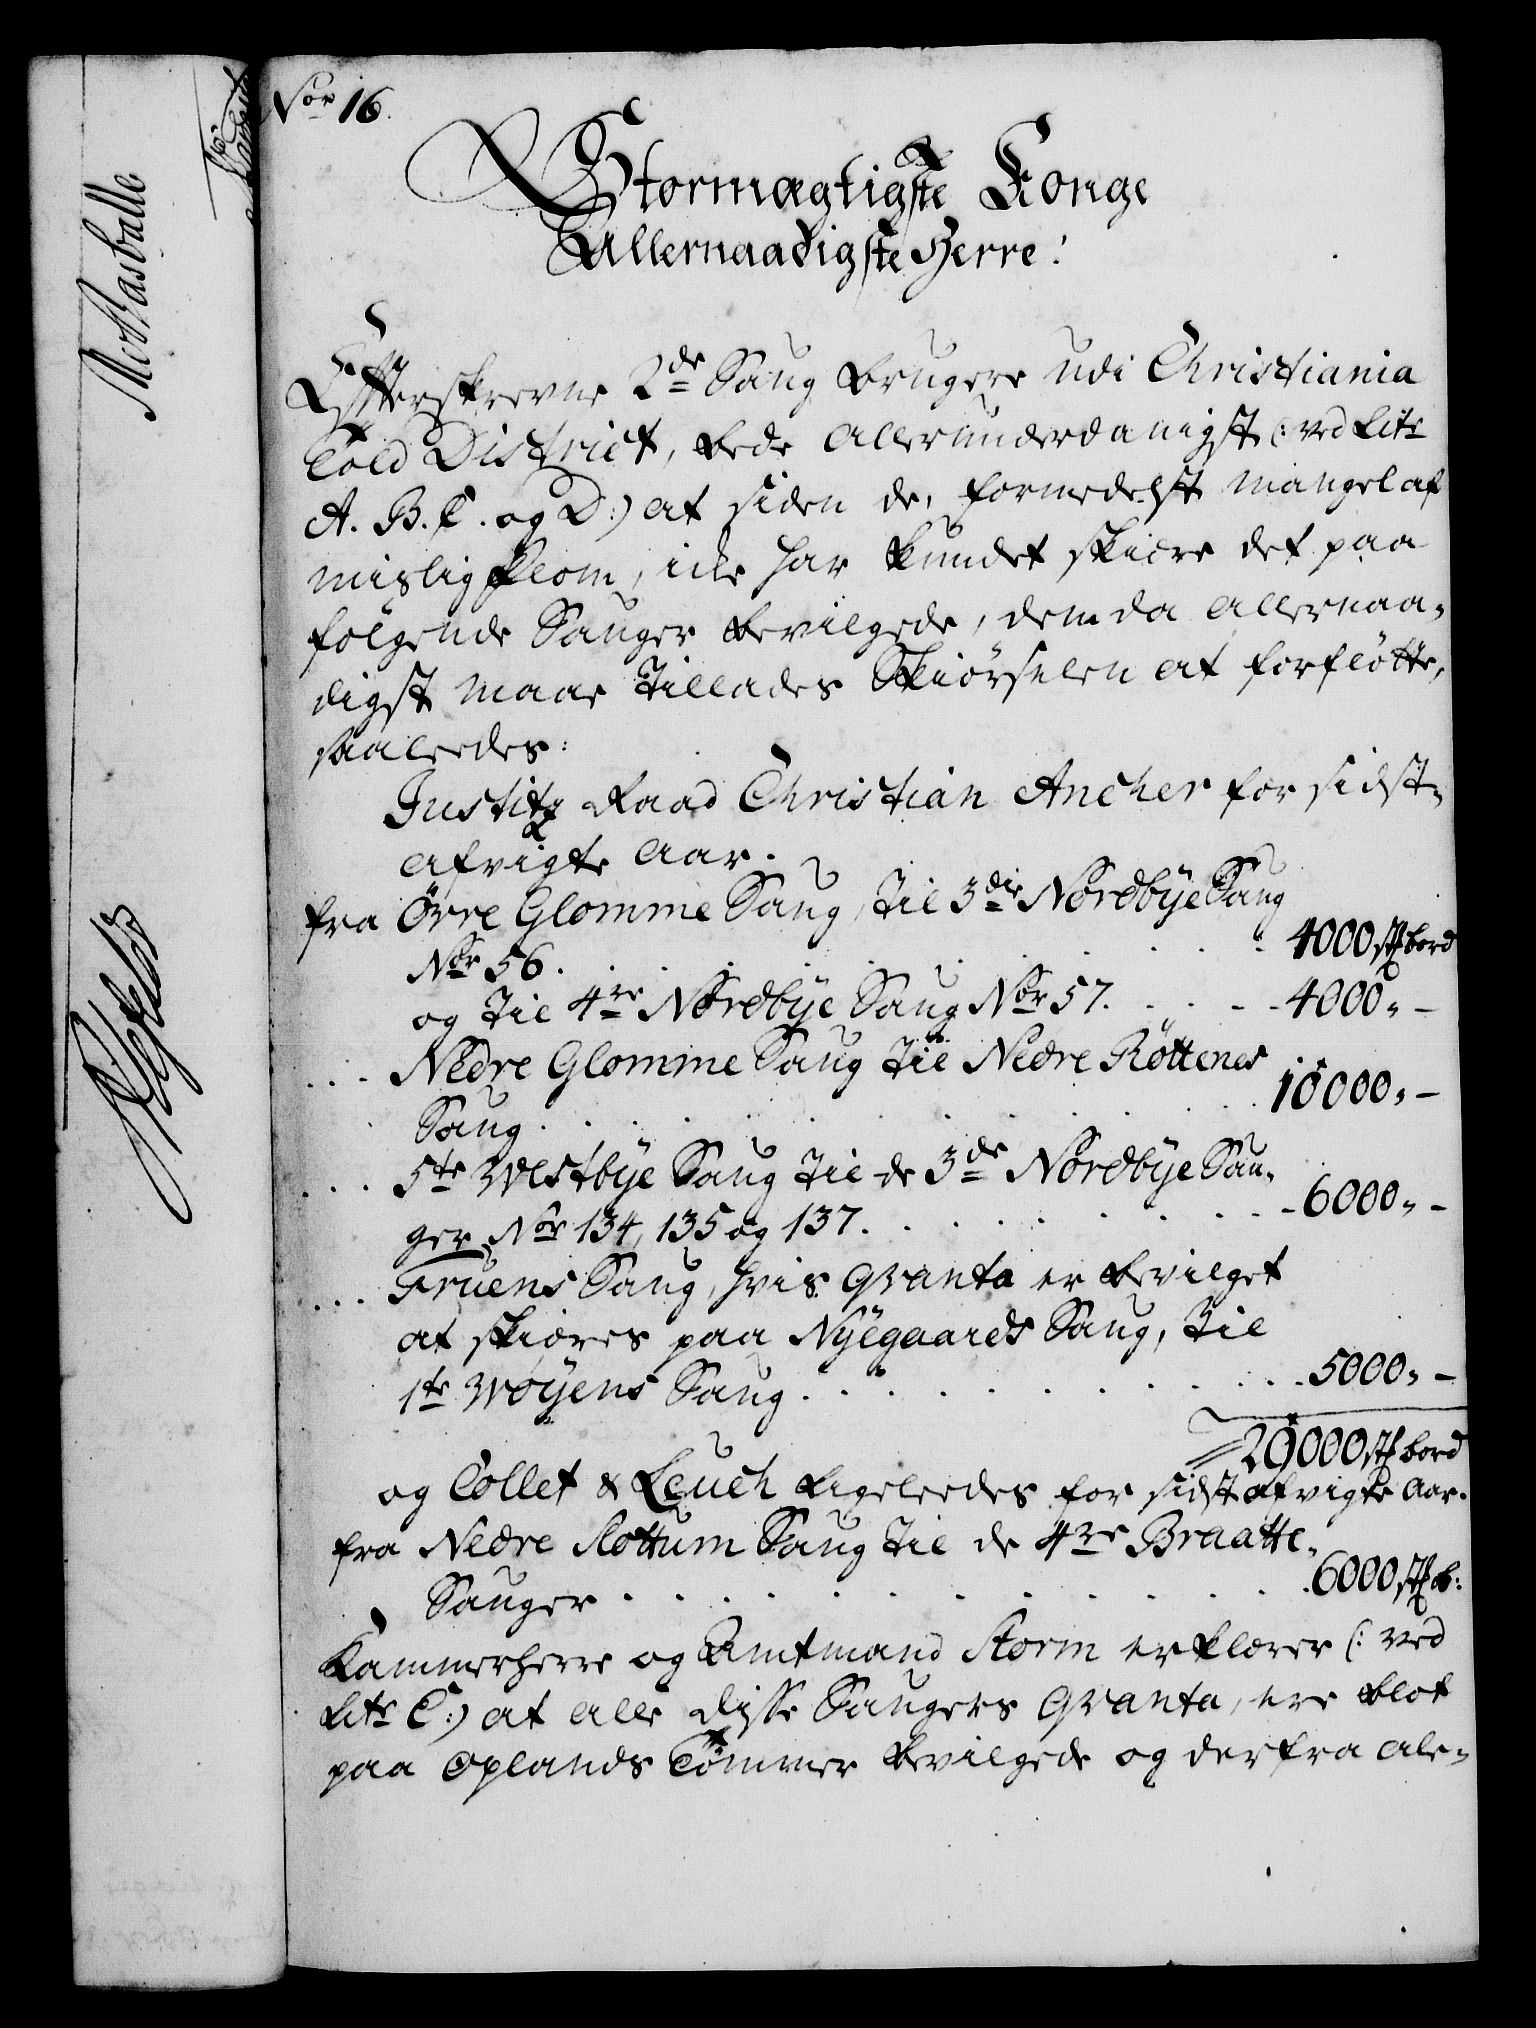 Nor 16.
Stormægtigste Konge
Allernaadigste Herre!
Efterskrevne 2de Saug Brugere udi Christiania
Told District, bede allerunderdanigst (: ved Litr
A. B. C. og D:) at siden de, formedelst mangel af
mislig flom, icke har kundet skiære det paa
følgende Sauger bevilgede, dem da allernaa-
digst maae tillades Skiørselen at forfløtte,
saaleedes:
Justitz Raad Christian Ancher for sidst-
afvigte Aar.
fra Örre Glomme Saug, til 3die Nordbÿe Saug
Nor 56. 4000 st bord
og til 4re Nordbÿe Saug Nor 57. 4000 " -
... Nedre Glomme Saug til Nedre Röttenes
Saug. 10000 " -
... 5te Westbÿe Saug til de 3de Nordbÿe Sau-
ger, Nor 134, 135 og 137. 6000 " -
... Fruens Saug, hvis Qvanta er bevilget
at skiæres paa Nÿegaards Saug, til
1te Woÿens Saug. 5000 " -
29000 st bord
og Collet & Leuch ligeleedes for sidstafvigte Aar.
fra Nedre Slottum Saug til de 4re Braatte-
Sauger. 6000 st b:
Kammerherre og Amtmand Storm erklærer (: ved
Litr C:) at alle disse Saugers Qvanta, ere blot
paa Oplands Tømmer bevilgede og derfra ale-